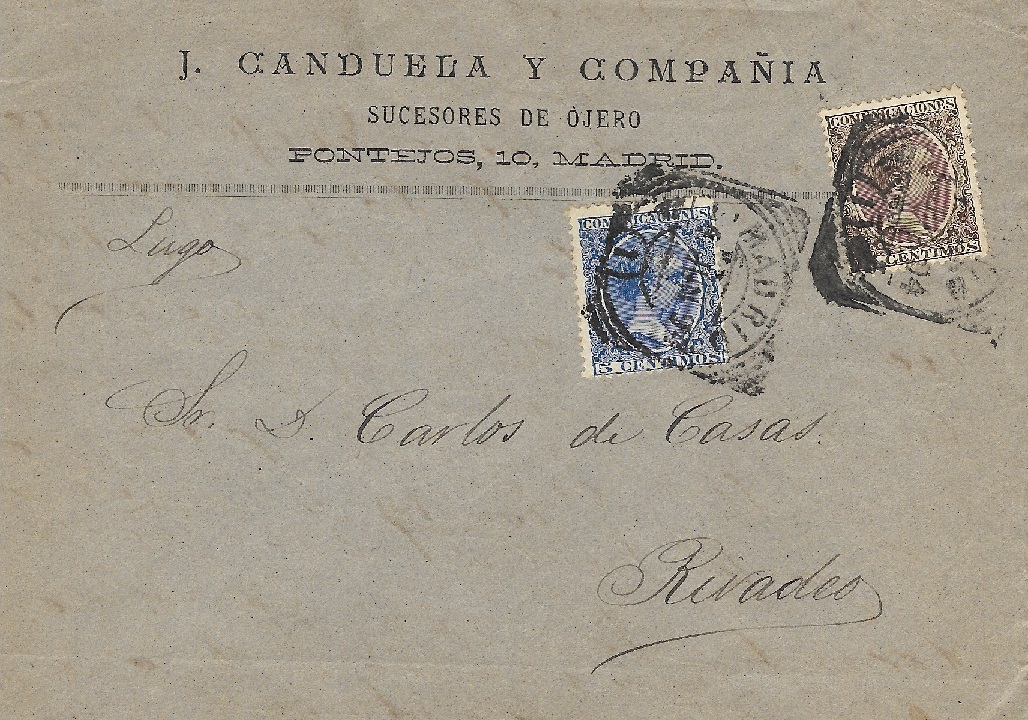 J. CANDUELA Y COMPAÑIA
SUCESORES DE OJERO
PONTEJOS, 10, MADRID.
COMUNICACIONES
CENTIMOS
COMUNICACIONES
5 CENTIMOS
MADRID
94
Lugo
Sr. D. Carlos de Casas.
Rivadeo